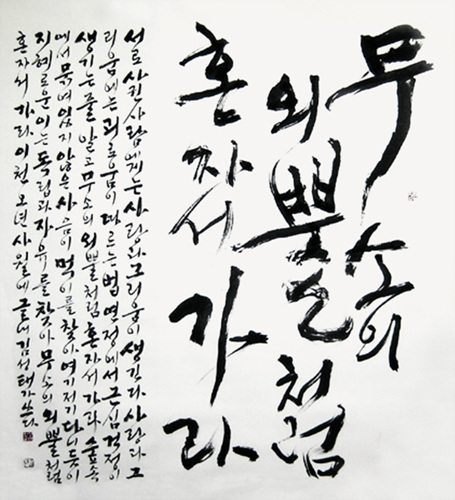 무소의
외뿔처럼
혼자서 가라
서로 사귄 사람에게는 사랑과 그리움이 생긴다 사랑과 그
리움에는 괴로움이 따르는 법 연정에서 근심 걱정이
생기는 줄 알고 무소의 외뿔처럼 혼자서 가라 숲속
에서 묶여 있지 않은 사슴이 먹이를 찾아 여기저기 다니듯이
지혜로운 이는 독립과 자유를 찾아 무소의 외뿔처럼
혼자서 가라 이천 오년 사월에 김성태가 쓰다